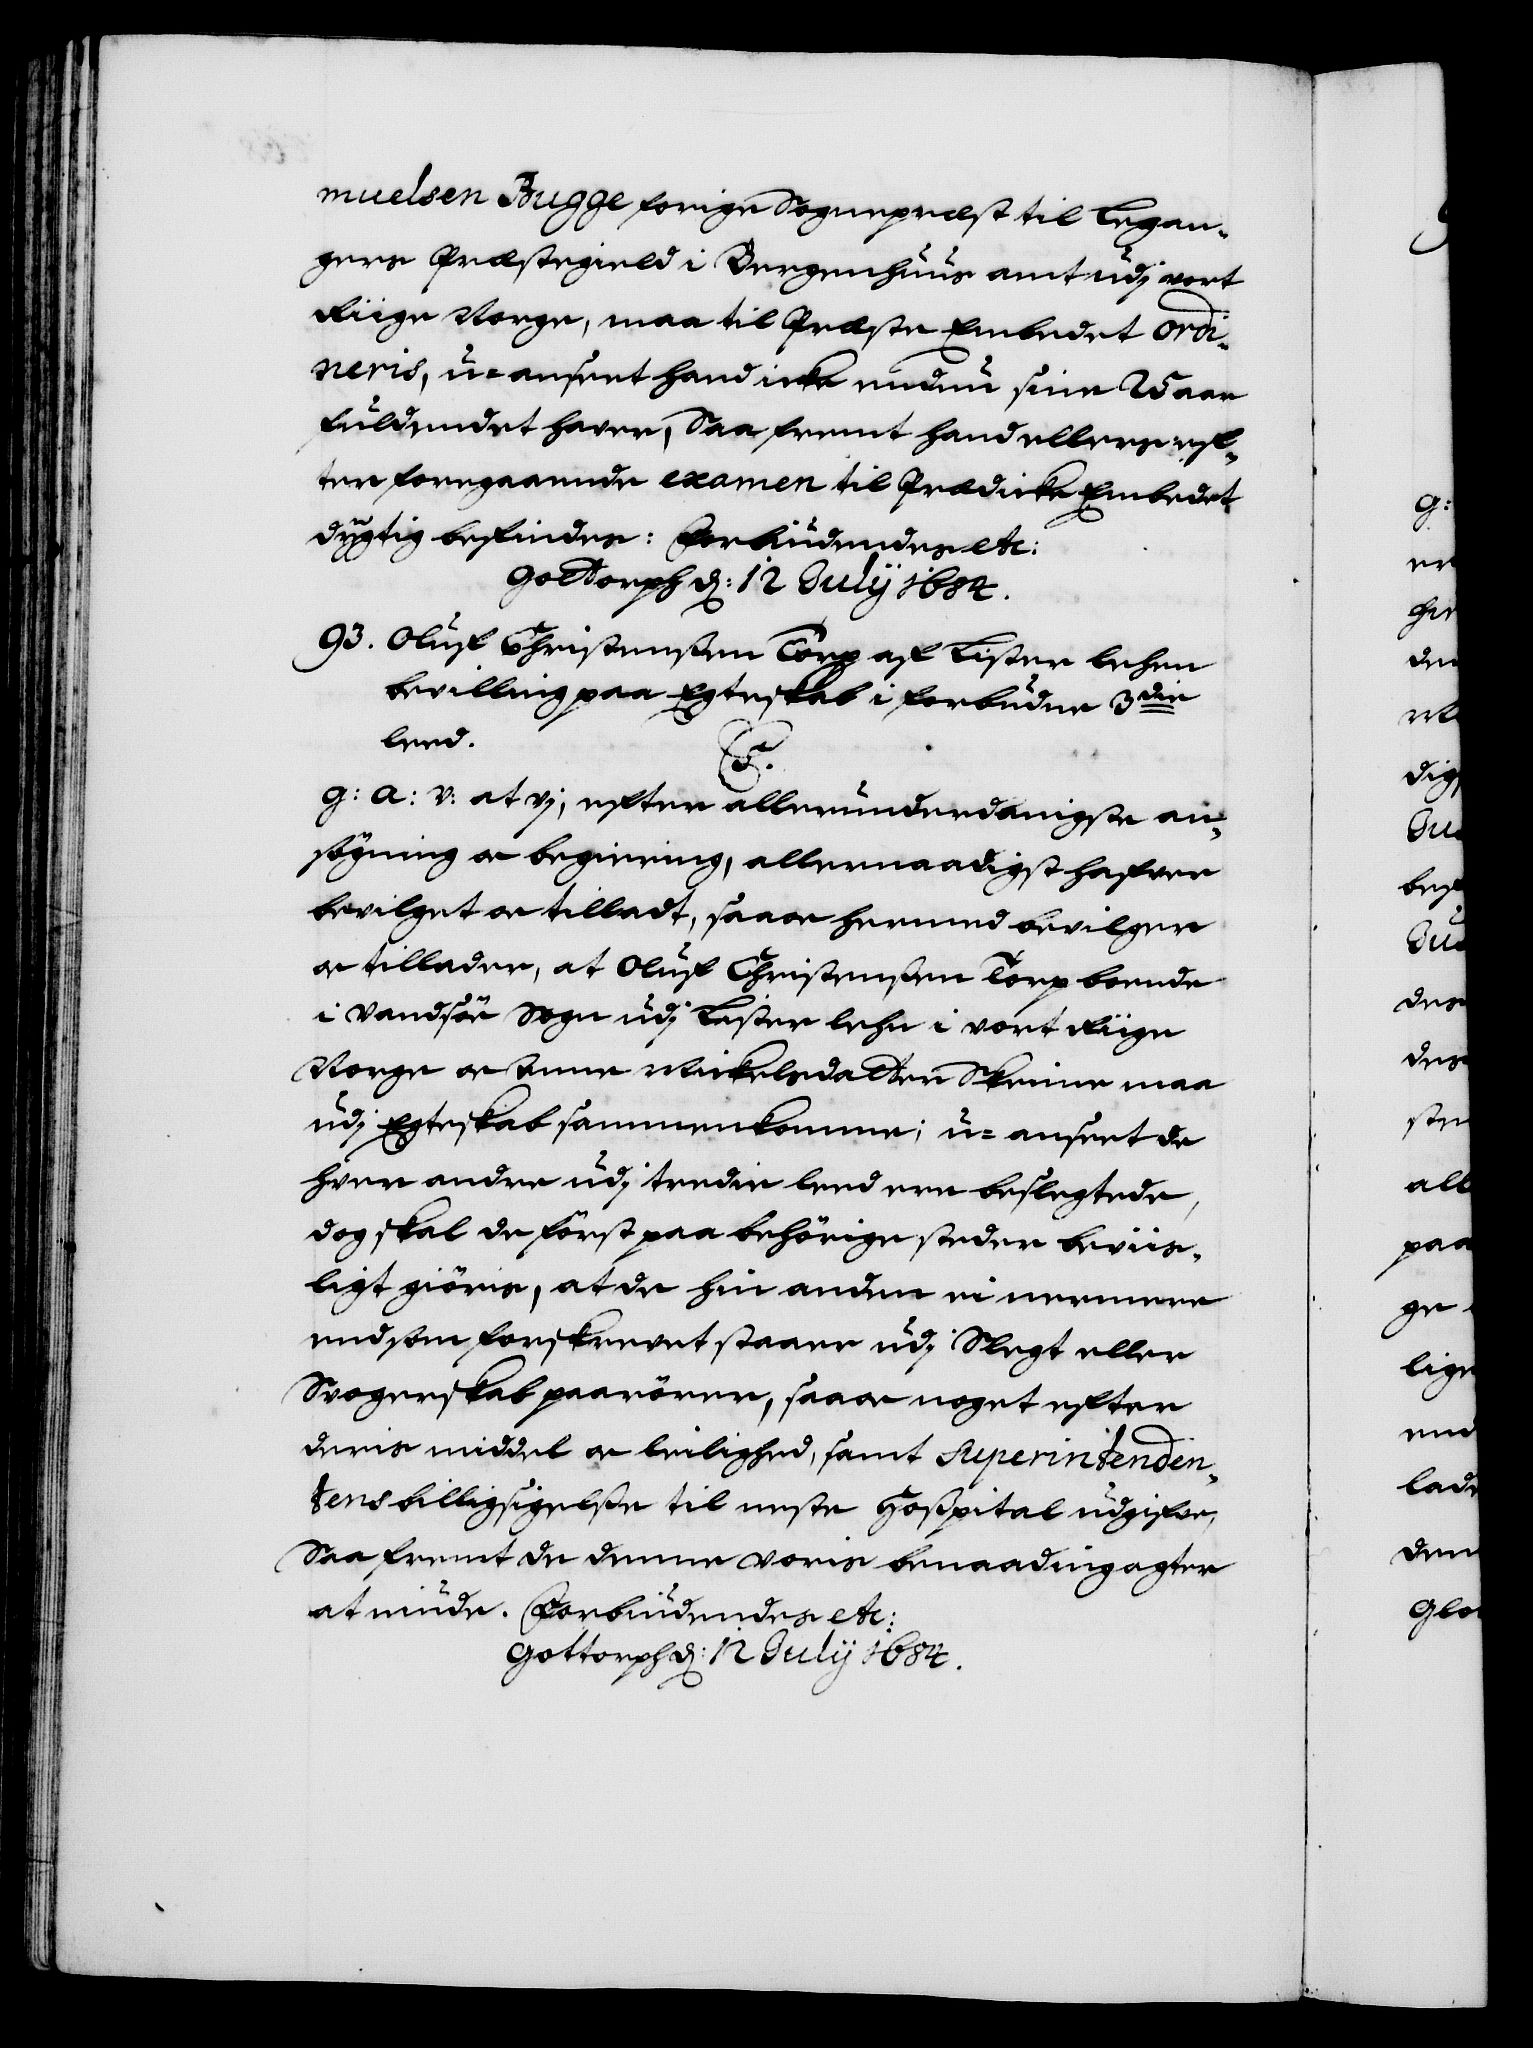 muelsen Bugge forige Sognepræst til Legan-
gers Præstegield i Bergenhuus amt udj vort
Riige Norge, maa til Præste Embedet ordi-
neris, u-anseet hand icke endnu sine 25 aar
fuldendet haver, Saa fremt hand ellers ef-
ter foregaaende examen til Prædicke Embedet
dygtig befindes: Forbiudendes etc:
Gottorph d: 12 July 1684.
93. Oluf Christenssen Torp af Lister lehen
bevilling paa Egteskab i forbudne 3die
leed.
C5.
G: A: V: at vj, efter allerunderdanigste an-
søgning oc begiering, allernaadigst hafver
bevilget oc tilladt, saa oc hermed bevilger
oc tillader, at Oluf Christenssen Torp boende
i Vandsöe Sogn udj Lister lehn i vort Riige
Norge oc Anne Mickelsdatter Skeime maa
udj Egteskab sammenkomme; u-anseet de
hver andre udj tredie leed ere beslegtede,
dog skal de först paa behörige steder beviis-
ligt giöris, at de hin anden ei nermere
end som forskrevet staaer udj Slegt eller
Svogerskab paarörer, saa oc noget efter
deris middel oc leilighed, samt Superintenden-
tens billigsigelsse til neste Hosspital udgifve,
Saa fremt de denne voris benaading agter
at niude. Forbiudendes etc:
Gottorph d: 12 July 1684.